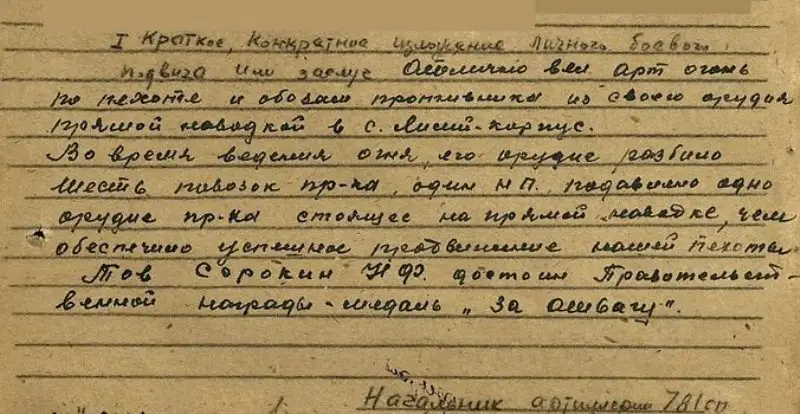 I Краткое, конкретное изложение личного боевого
подвига или заслуг Отлично вел арт огонь
по пехоте и обозам противника из своего орудия
прямой наводкой в с. Лисий-корпус.
Во время ведения огня, его орудие разбило
шесть повозок пр-ка, один НП, подавило одно
орудие пр-ка стоящее на прямой наводке, чем
обеспечило успешное продвижение нашей пехоты
Тов Сорокин Н Ф. достоин Правительст-
венной награды - медаль „За отвагу".
Начальник артиллерии 781 сп